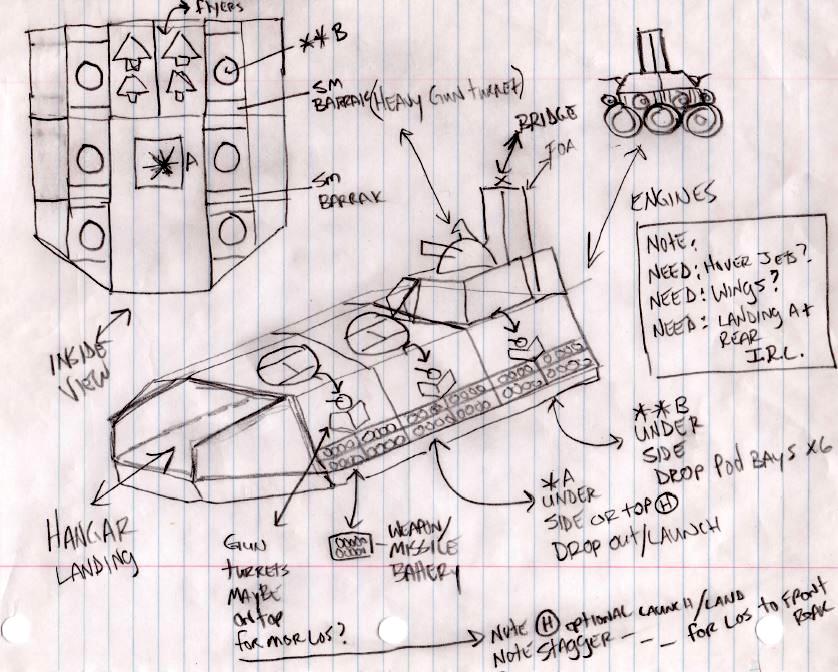 FLYERS
**B
SM
BARRAK
(HEAVY GUN TURRET)
BRIDGE
FOA
A
SM
BARRAK
ENGINES
NOTE,
NEED: HOVER JETS?
NEED: WINGS?
NEED: LANDING AT
REAR
I.R.L.
INSIDE
VIEW
**B
UNDER
SIDE
DROP POD BAYS X6
*A
UNDER
SIDE OR TOP H
DROP OUT/LAUNCH
HANGAR
LANDING
GUN
TURRETS
MAYBE
ON TOP
FOR MOR LOS?
WEAPON/
MISSILE
BATTERY
NOTE H OPTIONAL LAUNCH/LAND
NOTE STAGGER - - - FOR LOS TO FRONT
REAR